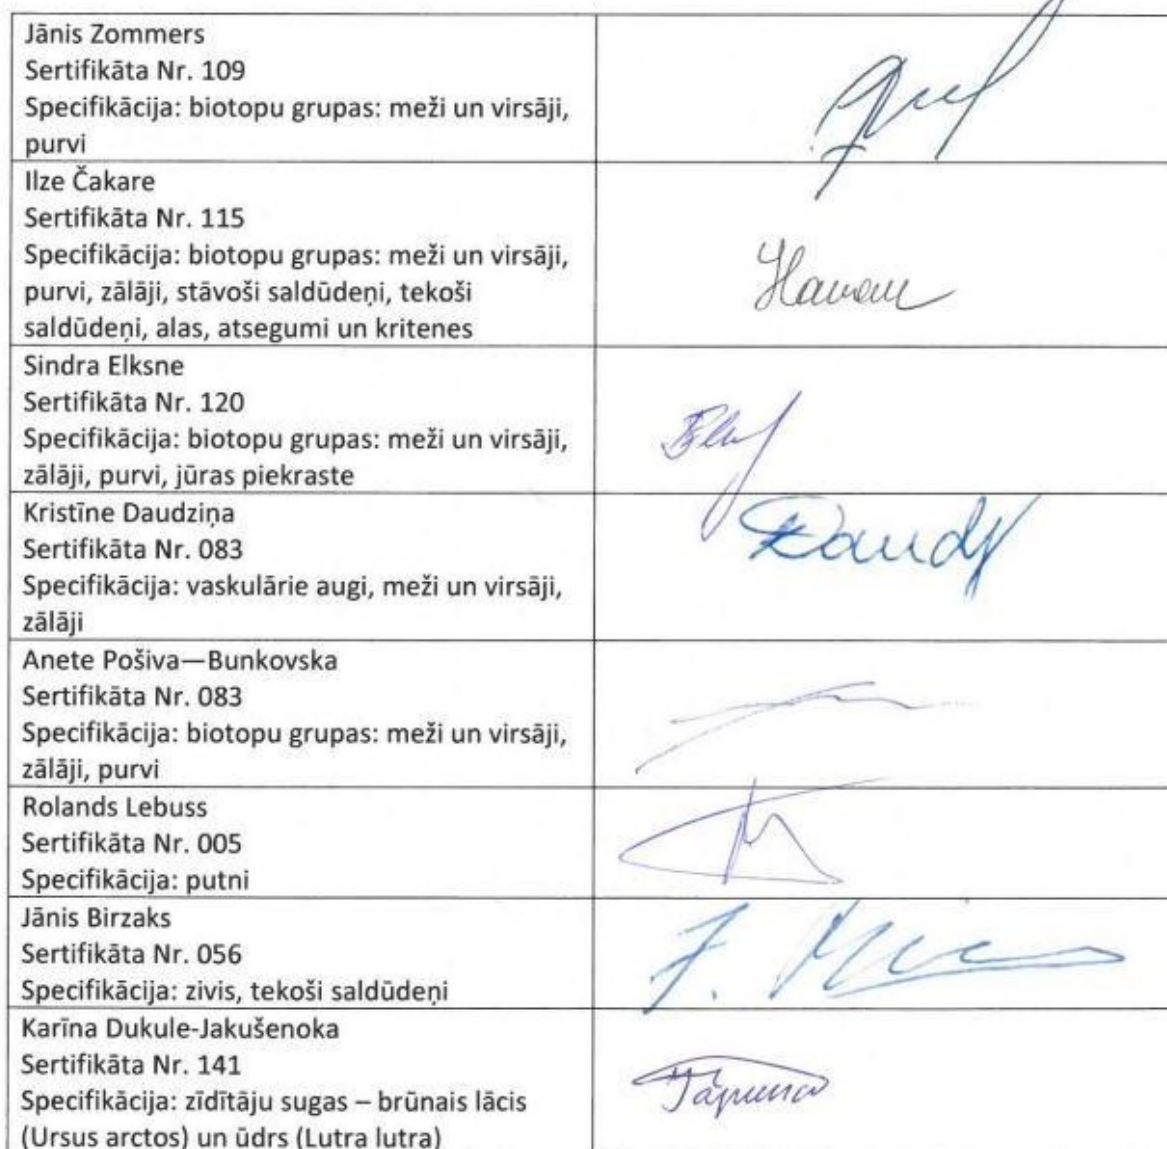 Jānis Zommers
Sertifikāta Nr. 109
Specifikācija: biotopu grupas: meži un virsāji,
purvi
Ilze Čakare
Sertifikāta Nr. 115
Specifikācija: biotopu grupas: meži un virsāji,
purvi, zālāji, stāvoši saldūdeņi, tekoši
saldūdeņi, alas, atsegumi un kritenes
Sindra Elksne
Sertifikāta Nr. 120
Specifikācija: biotopu grupas: meži un virsāji,
zālāji, purvi, jūras piekraste
Kristīne Daudziņa
Sertifikāta Nr. 083
Specifikācija: vaskulārie augi, meži un virsāji,
zālāji
Anete Pošiva—Bunkovska
Sertifikāta Nr. 083
Specifikācija: biotopu grupas: meži un virsāji,
zālāji, purvi
Rolands Lebuss
Sertifikāta Nr. 005
Specifikācija: putni
Jānis Birzaks
Sertifikāta Nr. 056
Specifikācija: zivis, tekoši saldūdeņi
Karīna Dukule-Jakušenoka
Sertifikāta Nr. 141
Specifikācija: zīdītāju sugas – brūnais lācis
(Ursus arctos) un ūdrs (Lutra lutra)